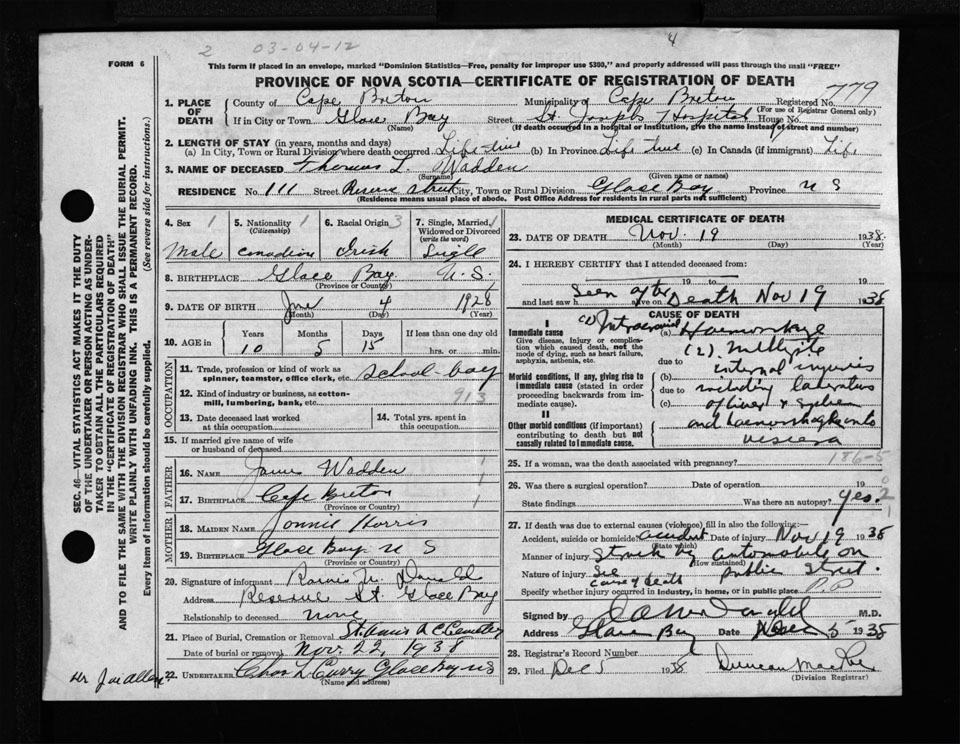 2 03-04-12 4
FORM 6
This form if placed in an envelope, marked "Dominion Statistics—Free, penalty for improper use $300," and properly addressed will pass through the mail "FREE"
PROVINCE OF NOVA SCOTIA—CERTIFICATE OF REGISTRATION OF DEATH
1. PLACE OF DEATH
County of Cape Breton Municipality of Cape Breton Registered No. 779
(For use of Registrar General only)
If in City or Town Glace Bay Street St. Josephs Hospital House No.
(Name) (If death occurred in a hospital or institution, give the name instead of street and number)
2. LENGTH OF STAY (in years, months and days)
(a) In City, Town or Rural Division where death occurred Life-time (b) In Province Life time (c) In Canada (if immigrant) Life
3. NAME OF DECEASED Thomas L. Wadden
(Surname) (Given name or names)
RESIDENCE No. 111 Street Reserve street City, Town or Rural Division Glace Bay Province N S
(Residence means usual place of abode. Post Office Address for residents in rural parts not sufficient)
4. Sex 1 5. Nationality 1 (Citizenship) 6. Racial Origin 3 7. Single, Married, Widowed or Divorced (write the word) 1
Male Canadian Irish Single
8. BIRTHPLACE Glace Bay N. S.
(Province or Country)
9. DATE OF BIRTH June 4 1928
(Month) (Day) (Year)
10. AGE in Years Months Days If less than one day old
10 5 15 hrs. or min.
OCCUPATION
11. Trade, profession or kind of work as spinner, teamster, office clerk, etc. school-boy
12. Kind of industry or business, as cotton-mill, lumbering, bank, etc. 913
13. Date deceased last worked at this occupation
14. Total yrs. spent in this occupation
15. If married give name of wife or husband of deceased
FATHER
16. NAME James Wadden 1
17. BIRTHPLACE Cape Breton 1
(Province or Country)
MOTHER
18. MAIDEN NAME
19. BIRTHPLACE Glace Bay N S
(Province or Country)
20. Signature of informant
Address Reserve St. Glace Bay
Relationship to deceased none
21. Place of Burial, Cremation or Removal
Date of burial or removal Nov. 22, 1938
22. UNDERTAKER Chas L Curry Glace Bay NS
(Name and address)
MEDICAL CERTIFICATE OF DEATH
23. DATE OF DEATH Nov. 19 1938.
(Month) (Day) (Year)
24. I HEREBY CERTIFY that I attended deceased from:
19 to 19
and last saw h alive on Seen after Death Nov 19 1938
CAUSE OF DEATH
I
Immediate cause
Give disease, injury or complication which caused death, not the mode of dying, such as heart failure, asphyxia, asthenia, etc.
(1) Intracranial (a) Haemorrhage
(2). Multiple
due to internal injuries
Morbid conditions, if any, giving rise to immediate cause (stated in order proceeding backwards from immediate cause).
(b)
due to including laceration
(c) of liver & spleen
II
Other morbid conditions (if important) contributing to death but not causally related to immediate cause.
and haemorrhage into
viscera
25. If a woman, was the death associated with pregnancy? 186-5
26. Was there a surgical operation? Date of operation 19 0
State findings Was there an autopsy? yes. 2
1
27. If death was due to external causes (violence) fill in also the following:—
Accident, suicide or homicide accident Date of injury Nov 19 1938
(State which)
Manner of injury Struck by automobile on
(How sustained)
Nature of injury See cause of death public street.
Specify whether injury occurred in industry, in home, or in public place P.P
Signed by M.D.
Address Glace Bay Date Dec 5 1938
28. Registrar's Record Number
29. Filed Dec 5 1938 Duncan
(Division Registrar)
SEC. 46—VITAL STATISTICS ACT MAKES IT THE DUTY OF THE UNDERTAKER OR PERSON ACTING AS UNDERTAKER TO OBTAIN ALL THE PARTICULARS REQUIRED IN THE "CERTIFICATE OF REGISTRATION OF DEATH" AND TO FILE THE SAME WITH THE DIVISION REGISTRAR WHO SHALL ISSUE THE BURIAL PERMIT.
WRITE PLAINLY WITH UNFADING INK. THIS IS A PERMANENT RECORD.
Every item of information should be carefully supplied. (See reverse side for instructions.)